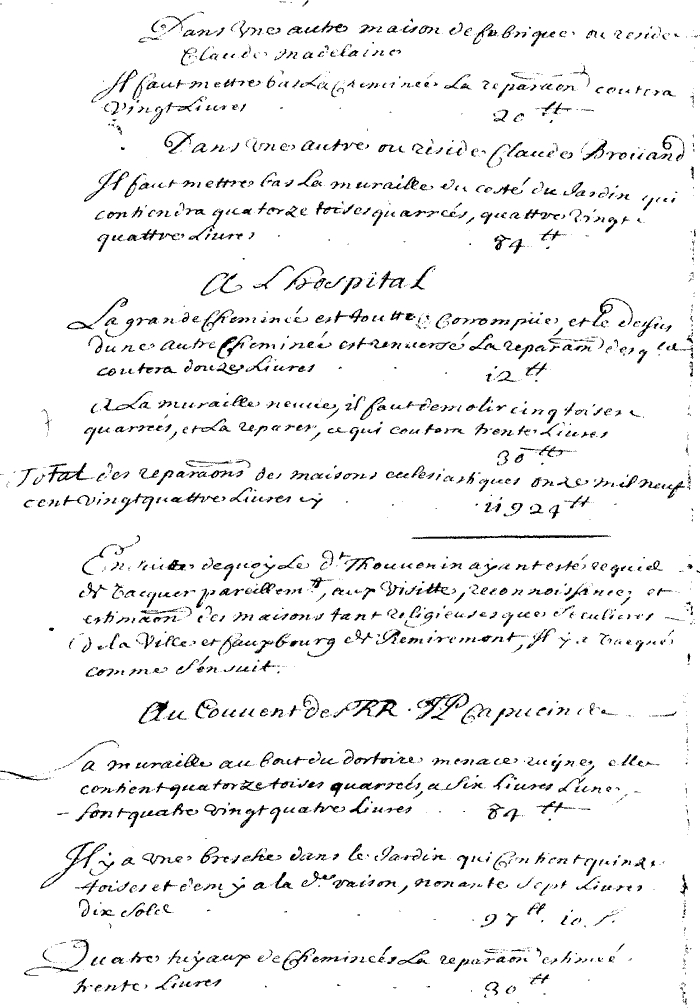 Dans Vne autre maison de fabrique ou reside
Claude Madelaine
Il faut mettre bas La Cheminée La reparaon coutera
Vingt Livres . . . 20 tt
Dans Vne autre ou reside Claude Broüand
Il faut mettre bas La muraille du costé du Jardin qui
contiendra quatorze toises quarrées, quattre vingt
quattre Livres . . . 84 tt
A Lhospital
La grande Cheminée est toutte Corrompüe, et le dessus
dune autre Cheminée est renuersé La reparaon des
coutera douze Livres . . . 12 tt
A La muraille neuue, il faut demolir cinq toises
quarrées, et La reparer, ce qui coutera trente Livres
30 tt
Total des reparaons des maisons eclesiastiques onze mil neuf
cent Vingt quattre Livres cy . . . 11924 tt
En suitte de quoy Le dt Thouvenin ayant esté requid
de vacquer pareillemt, aux Visitte, reconnoissance, et
estimaon des maisons tant religieuses que Seculieres
de la Ville et fauxbourg de Remiremont, Il y a vacqué
comme S'ensuit.
Au Couuent des RR. PP Capucin
La muraille au bout du dortoire menace ruÿne, elle
contient quatorze toises quarrées, a Six Livres L'une,
font quatre vingt quatre Livres . 84 tt
Il y a Vne bresche dans le Jardin qui Contient quinze
toises et demÿ a la de raison, nonante Sept Livres
dix Sold . . . 97 tt. 10. s.
Quatre tuÿaux de Cheminées La reparaon estimeé
trente Livres . . . 30 tt